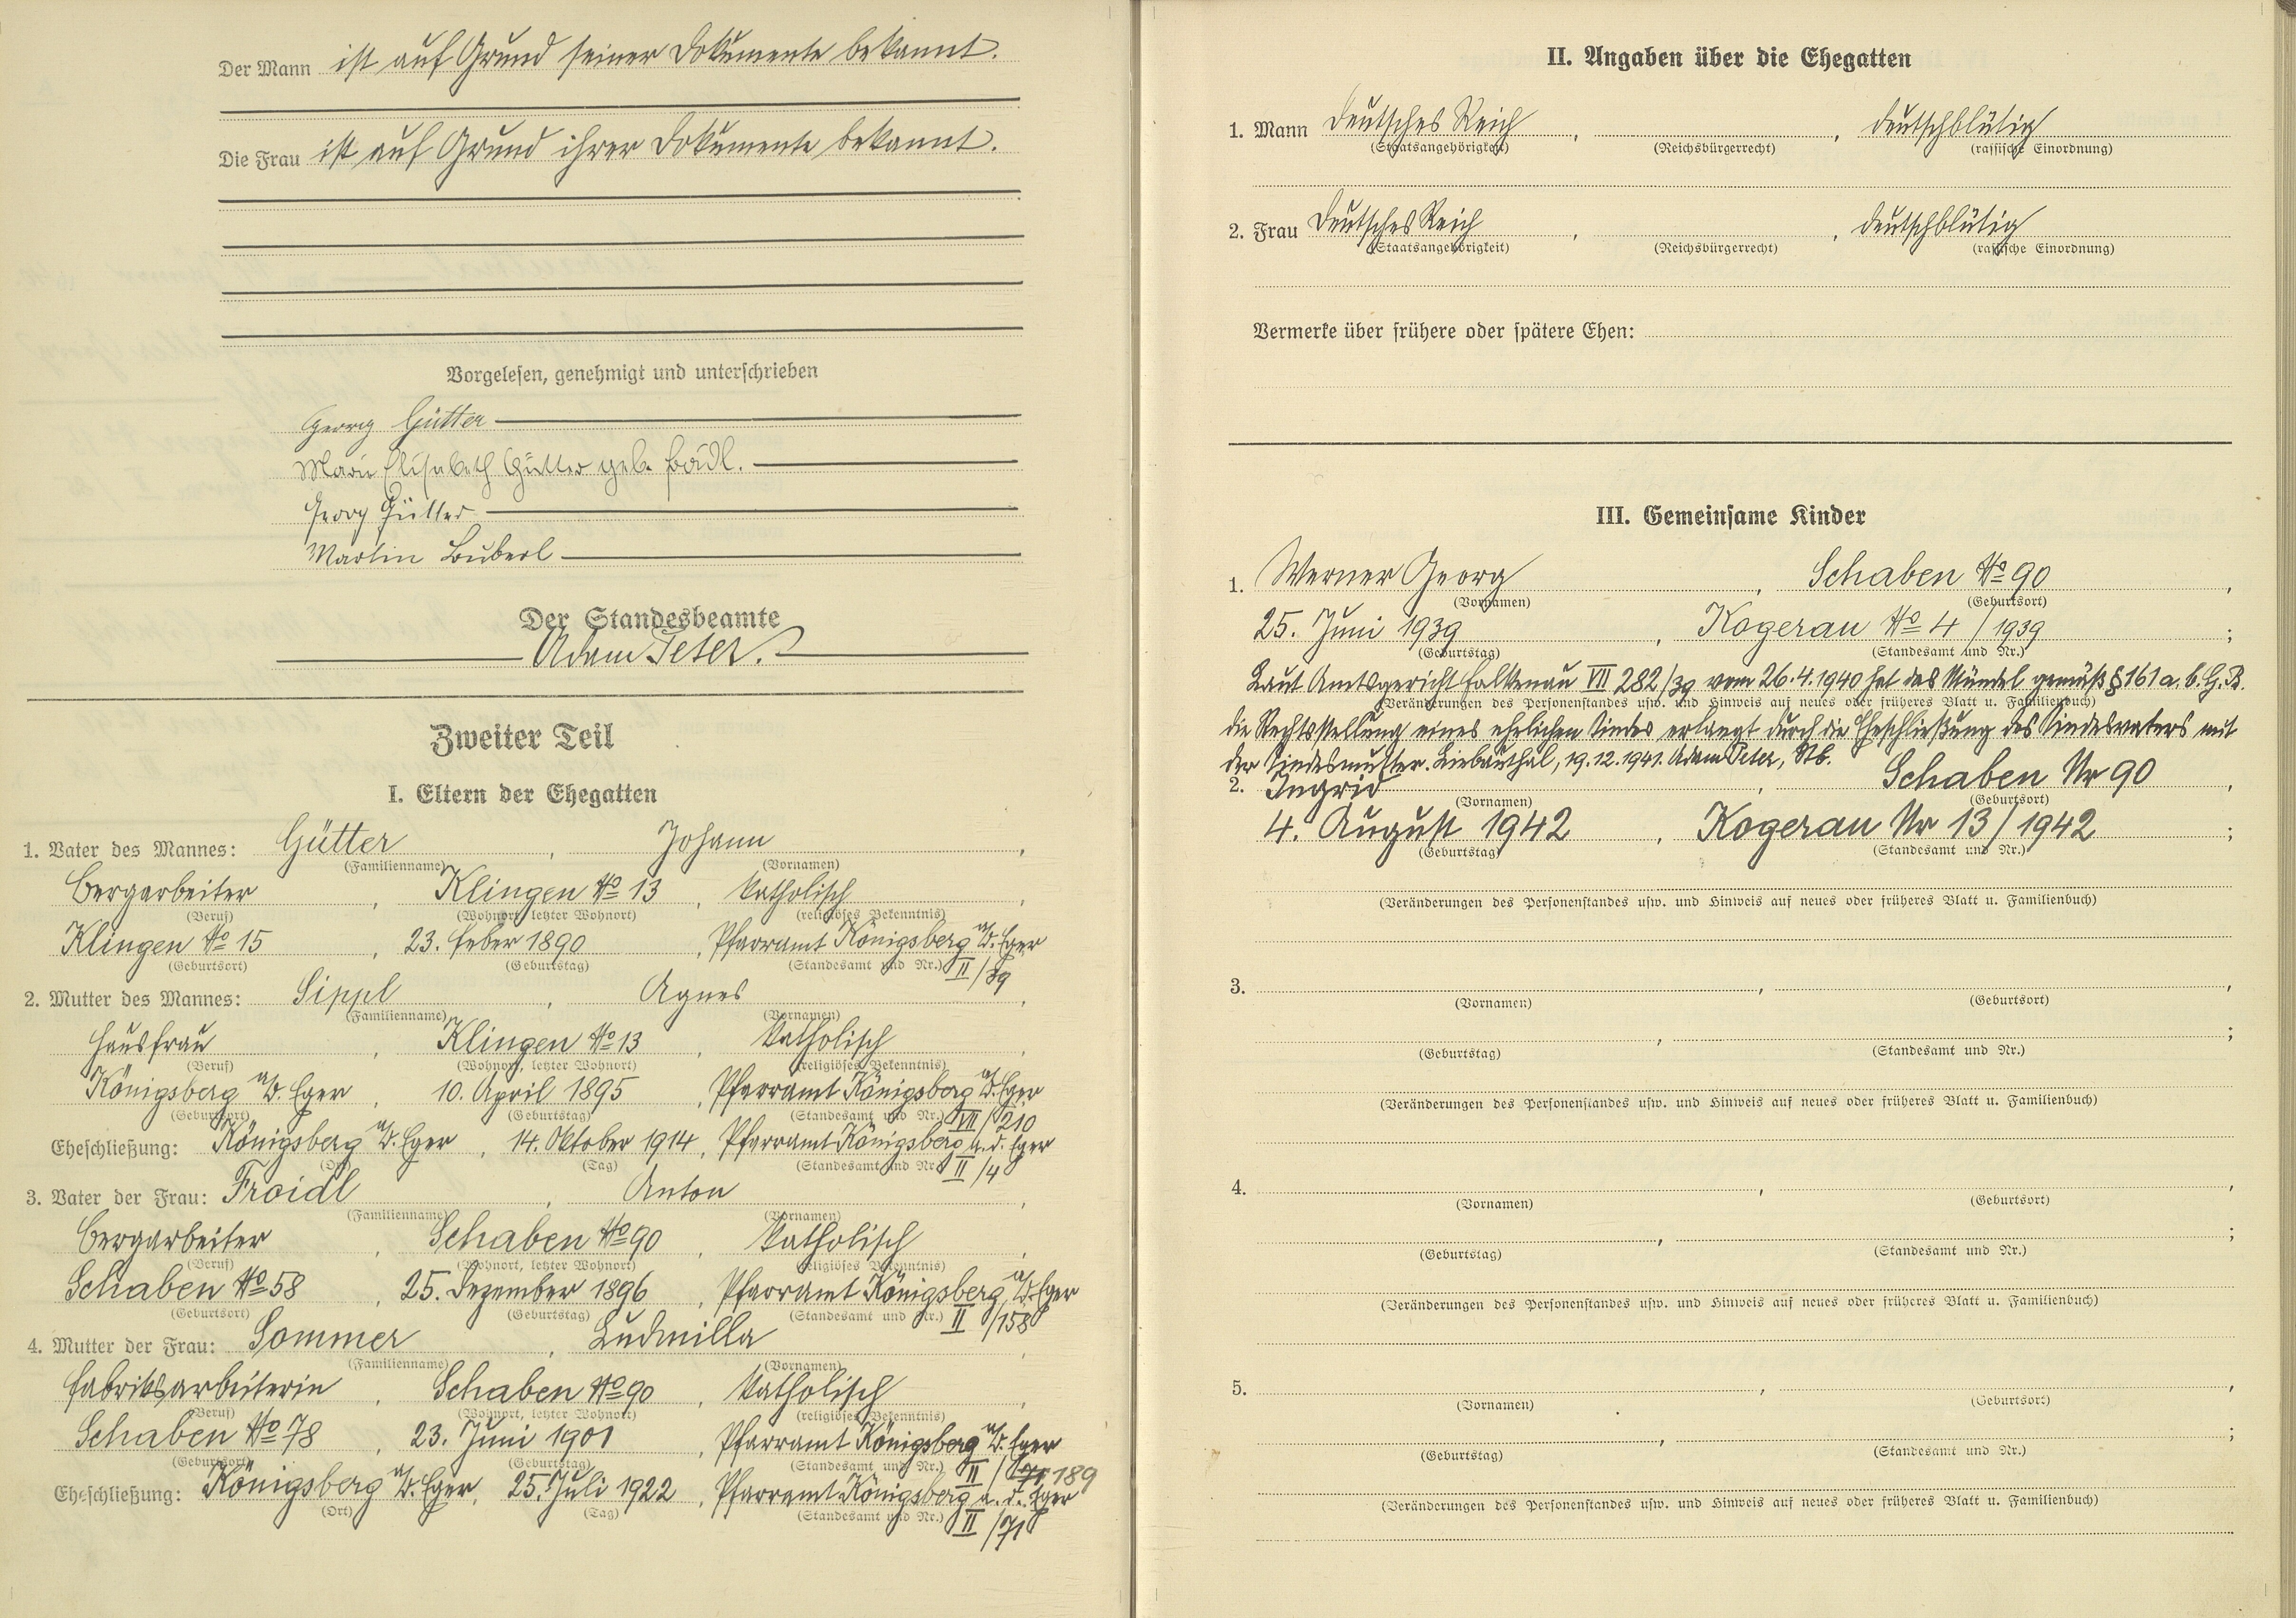 Der Mann ist auf Grund seiner Dokumente bekannt.
Die Frau ist auf Grund ihrer Dokumente bekannt.
Vorgelesen, genehmigt und unterschrieben
Georg Gütter
Marie Elisabeth Gütter geb.
Georg Gütter
Martin Buberl
Der Standesbeamte
Adam Peter.
Zweiter Teil
I. Eltern der Ehegatten
1. Vater des Mannes: Gütter, Johann,
(Familienname) (Vornamen)
Bergarbeiter, Klingen No 13, katholisch,
(Beruf) (Wohnort, letzter Wohnort) (religiöses Bekenntnis)
Klingen No 15, 23. Feber 1890, Pfarramt Königsberg a/d. Eger
(Geburtsort) (Geburtstag) (Standesamt und Nr.) II/39
2. Mutter des Mannes: Sippl, Agnes,
(Familienname) (Vornamen)
Hausfrau, Klingen No 13, katholisch,
(Beruf) (Wohnort, letzter Wohnort) (religiöses Bekenntnis)
Königsberg a/d. Eger, 10. April 1895, Pfarramt Königsberg a/d. Eger
(Geburtsort) (Geburtstag) (Standesamt und Nr.) VII/210
Eheschließung: Königsberg a/d. Eger, 14. Oktober 1914, Pfarramt Königsberg a. d. Eger
(Ort) (Tag) (Standesamt und Nr.) II/4
3. Vater der Frau: Froidl, Anton,
(Familienname) (Vornamen)
Bergarbeiter, Schaben No 90, katholisch,
(Beruf) (Wohnort, letzter Wohnort) (religiöses Bekenntnis)
Schaben No 58, 25. Dezember 1896, Pfarramt Königsberg a/d. Eger
(Geburtsort) (Geburtstag) (Standesamt und Nr.) II/158
4. Mutter der Frau: Sommer, Ludmilla,
(Familienname) (Vornamen)
Fabriksarbeiterin, Schaben No 90, katholisch,
(Beruf) (Wohnort, letzter Wohnort) (religiöses Bekenntnis)
Schaben No 78, 23. Juni 1901, Pfarramt Königsberg a/d. Eger
(Geburtsort) (Geburtstag) (Standesamt und Nr.) II/71 189
Eheschließung: Königsberg a/d. Eger, 25. Juli 1922, Pfarramt Königsberg a. d. Eger
(Ort) (Tag) (Standesamt und Nr.) II/71
II. Angaben über die Ehegatten
1. Mann Deutsches Reich, , deutschblütig
(Staatsangehörigkeit) (Reichsbürgerrecht) (rassische Einordnung)
2. Frau Deutsches Reich, , deutschblütig
(Staatsangehörigkeit) (Reichsbürgerrecht) (rassische Einordnung)
Vermerke über frühere oder spätere Ehen:
III. Gemeinsame Kinder
1. Werner Georg, Schaben No 90,
(Vornamen) (Geburtsort)
25. Juni 1939, Kogerau No 4/1939;
(Geburtstag) (Standesamt und Nr.)
Laut Amtsgericht Falkenau VII 282/39 vom 26.4.1940 hat das Mündel gemäß § 161 a. b. G. B.
(Veränderungen des Personenstandes usw. und Hinweis auf neues oder früheres Blatt u. Familienbuch)
die Rechtsstellung eines ehelichen Kindes erlangt durch die Eheschließung des Kindesvaters mit
der Kindesmutter. Liebauthal, 19.12.1941. Adam Peter, Stb.
2. Ingrid, Schaben Nr 90,
(Vornamen) (Geburtsort)
4. August 1942, Kogerau Nr 13/1942;
(Geburtstag) (Standesamt und Nr.)
(Veränderungen des Personenstandes usw. und Hinweis auf neues oder früheres Blatt u. Familienbuch)
3. , ,
(Vornamen) (Geburtsort)
, ;
(Geburtstag) (Standesamt und Nr.)
(Veränderungen des Personenstandes usw. und Hinweis auf neues oder früheres Blatt u. Familienbuch)
4. , ,
(Vornamen) (Geburtsort)
, ;
(Geburtstag) (Standesamt und Nr.)
(Veränderungen des Personenstandes usw. und Hinweis auf neues oder früheres Blatt u. Familienbuch)
5. , ,
(Vornamen) (Geburtsort)
, ;
(Geburtstag) (Standesamt und Nr.)
(Veränderungen des Personenstandes usw. und Hinweis auf neues oder früheres Blatt u. Familienbuch)